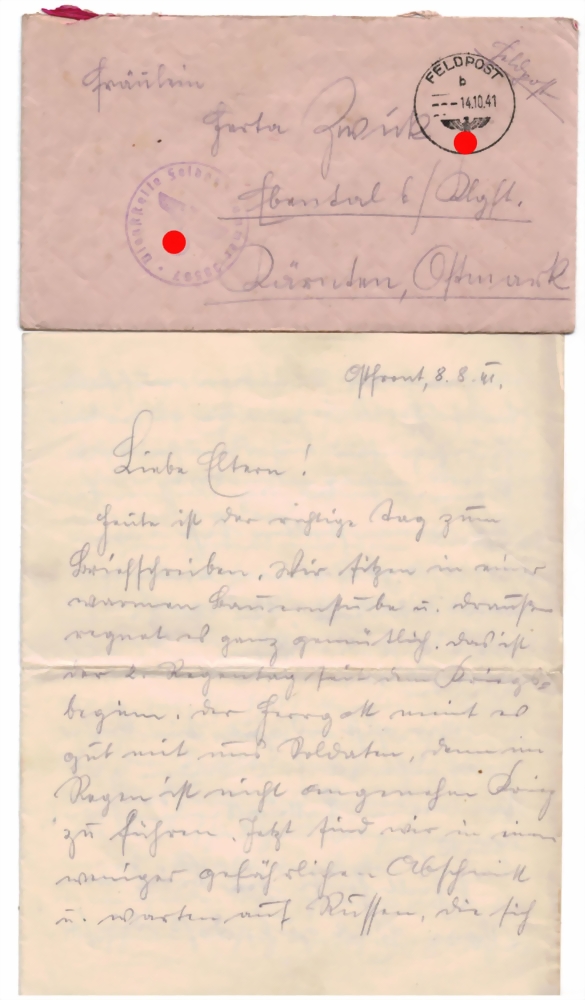 Feldpost
FELDPOST
b
14.10.41
Fräulein
Herta Zwick
Ebental b/Klgft.
Kärnten, Ostmark
Ostfront, 8.8.41.
Liebe Eltern!
Heute ist der richtige Tag zum
Briefschreiben. Wir sitzen in einer
warmen Bauernstube u. draußen
regnet es ganz gemütlich. Das ist
der 2. Regentag seit dem Kriegs
beginn. Der Herrgott meint es
gut mit uns Soldaten, denn im
Regen ist nicht angenehm Krieg
zu führen. Jetzt sind wir in einem
weniger gefährlichen Abschnitt
u. warten auf Russen, die sich